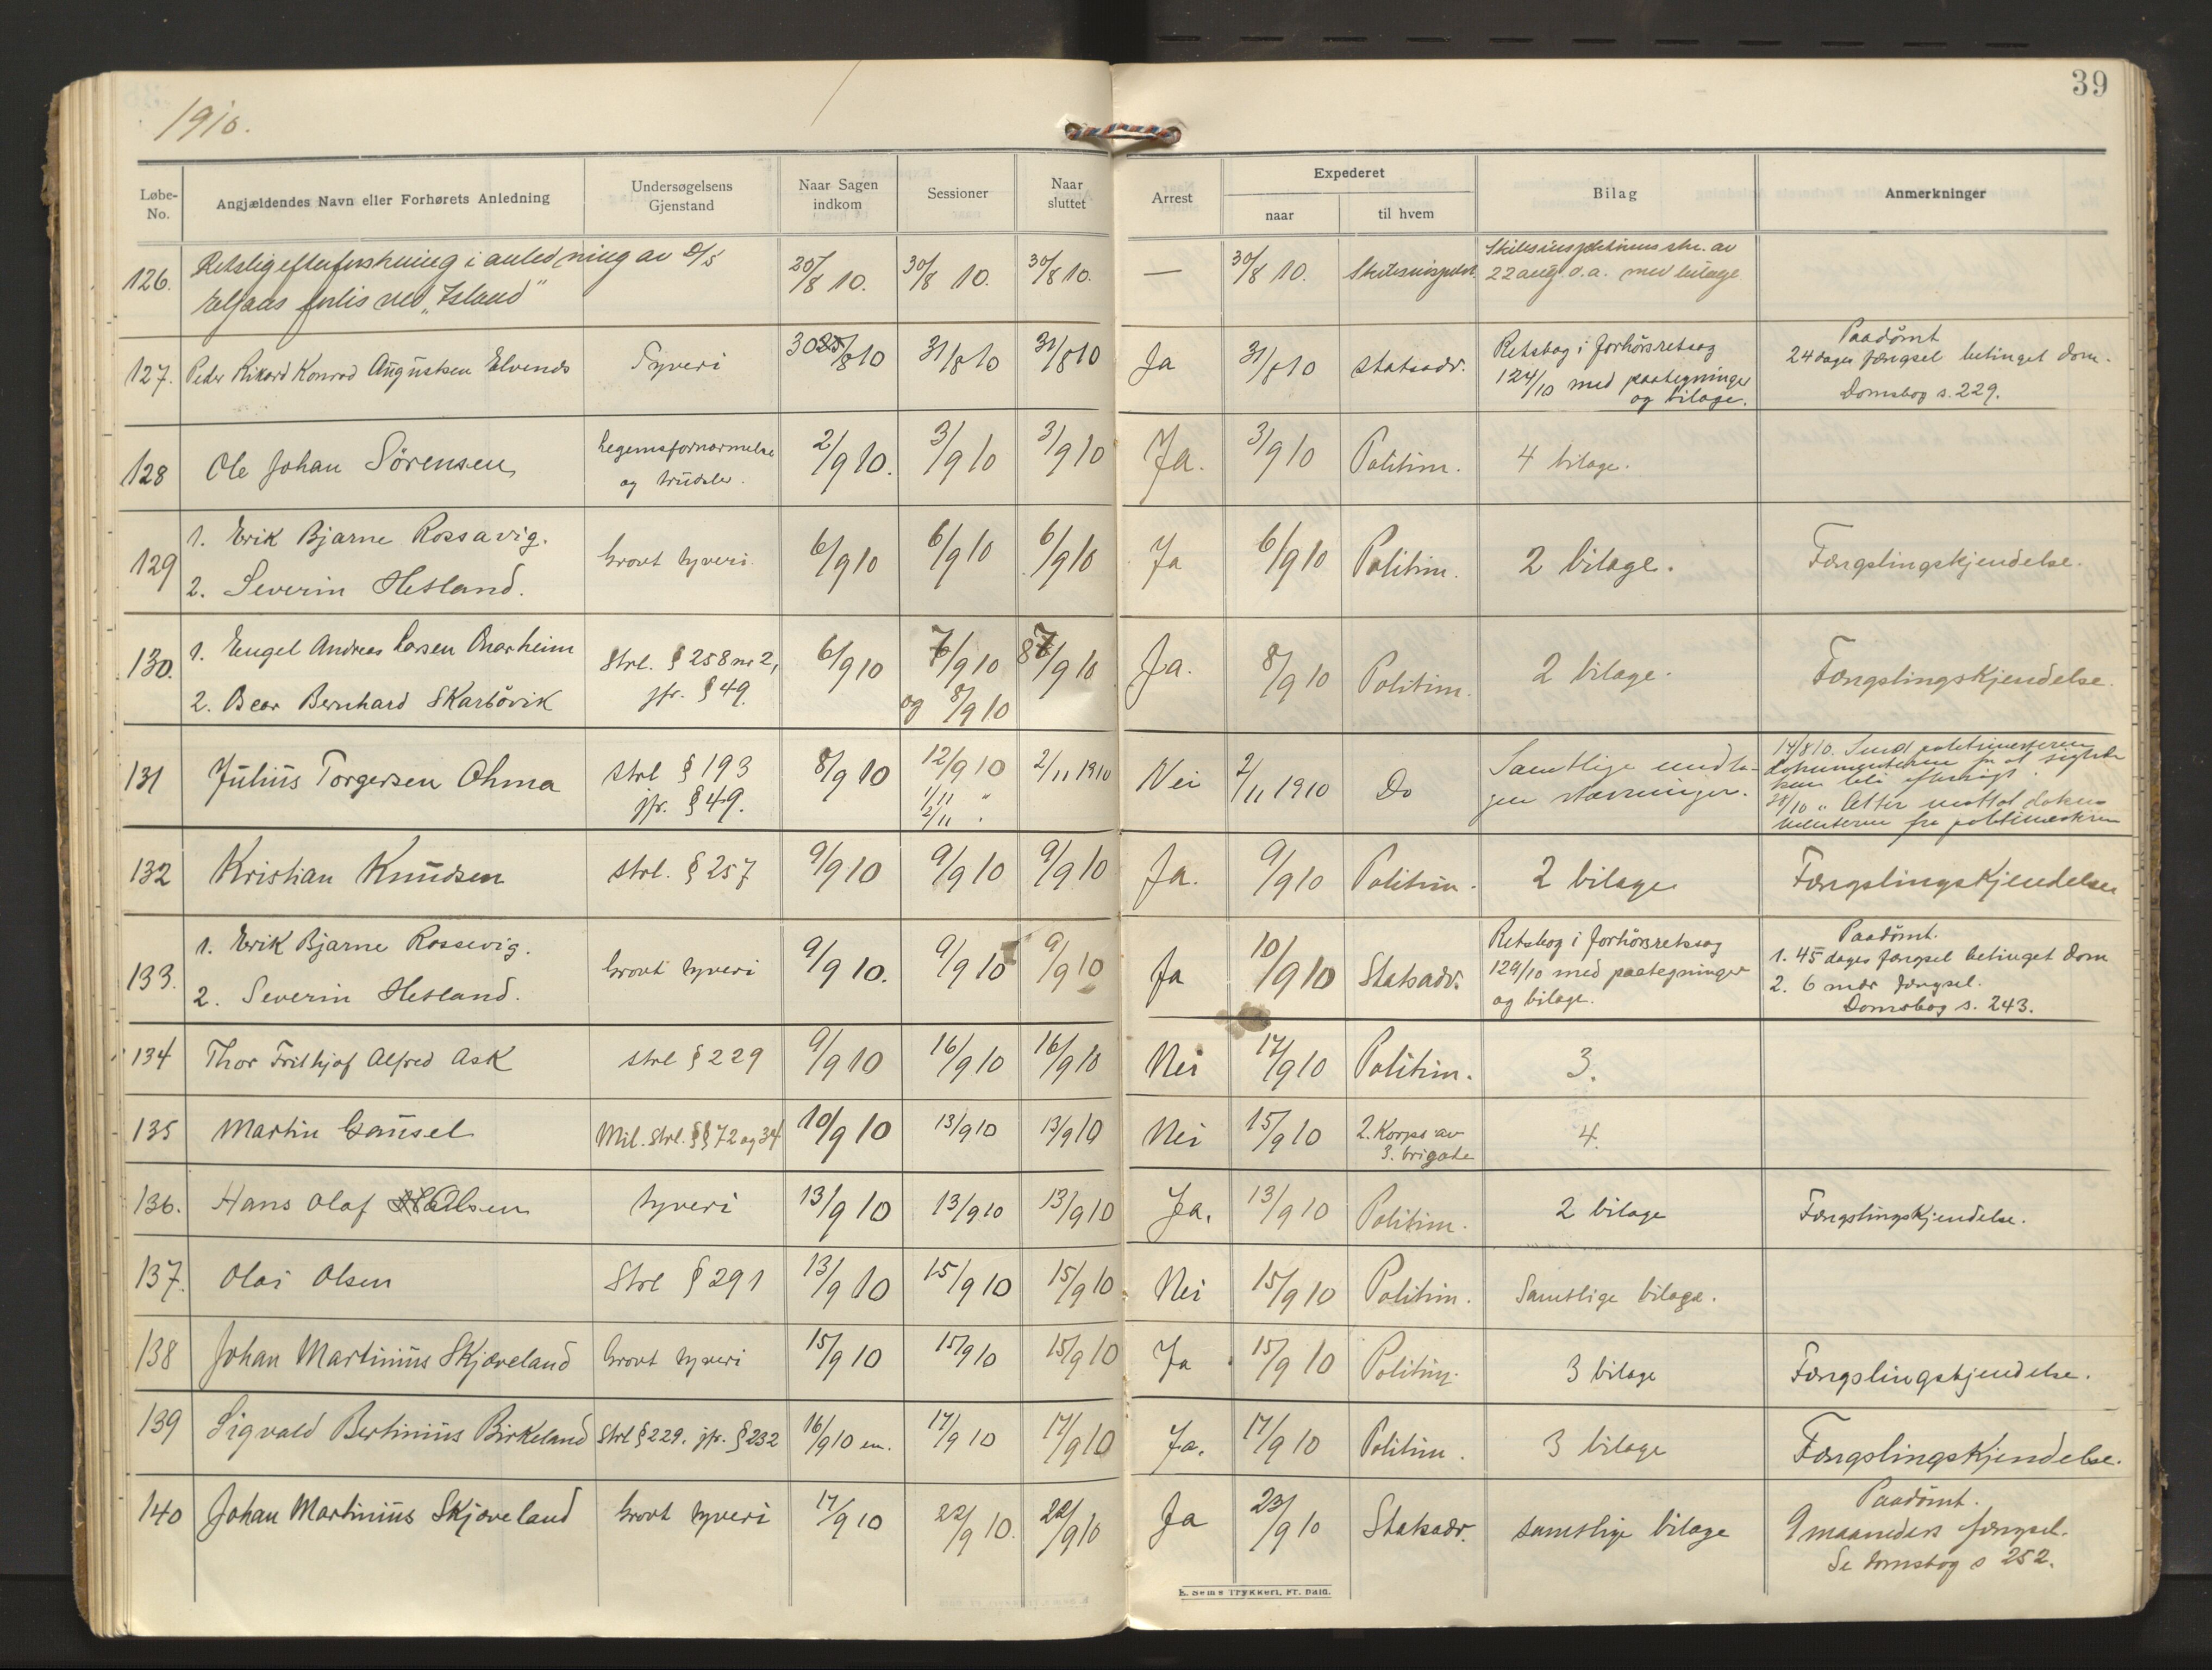 1910.
39
Løbe-No. Angjældendes Navn eller Forhørets Anledning Undersøgelsens Gjenstand Naar Sagen indkom Sessioner Naar sluttet Arrest Expederet naar til hvem Bilag Anmerkninger
126. Retslig efterforskning i anledning av D/S
forlis ved "Island" 20/8 10. 30/8 10. 30/8 10. — 30/8 10. Skibsinspekt. Skibsinspektionens skr. av
22 aug. d.a. med bilage
127. Peder Rikard Konrad Augustsen Elvends Tyveri 30/8 10 31/8 10 31/8 10 Ja 31/8 10 statsadv. Retsbog i forhørsretssag
124/10 med paategninger
og bilage. Paadømt
24 dages fængsel betinget dom.
Domsbog s. 229.
128 Ole Johan Sørensen Legemsfornærmelse
og trudsler. 2/9 10. 3/9 10 3/9 10 Ja. 3/9 10 Politim. 4 bilage.
129 1. Erik Bjarne Rossavig.
2. Severin Hetland. Grovt tyveri 6/9 10 6/9 10 6/9 10 Ja 6/9 10 Politim. 2 bilage. Fængslingskjendelse.
130. 1. Engel Andreas Larsen Onarheim
2. Oscar Bernhard Skarbøvik Strl. § 258 nr 2,
jfr. § 49. 6/9 10 7/9 10
og 8/9 10 8/9 10 Ja. 8/9 10 Politim. 2 bilage. Fængslingskjendelse.
131 Julius Torgersen Ohma Strl § 193
jfr. § 49. 8/9 10 12/9 10
1/11 "
2/11 " 2/11 1910 Nei 2/11 1910 Do Samtlige undta-
gen stævninger. 14/8 10. Send politimesteren
dokumenterne for at sigtede
kan bli eftersøgt.
28/10 " Atter mottat doku-
menterne fra politimesteren
132 Kristian Knudsen strl. § 257 9/9 10 9/9 10 9/9 10 Ja. 9/9 10 Politim. 2 bilage Fængslingskjendelse
133. 1. Erik Bjarne Rossevig.
2. Severin Hetland. Grovt tyveri 9/9 10. 9/9 10 9/9 10 Ja 10/9 10 Statsadv. Retsbog i forhørsretssag
129/10 med paategninger
og bilage. Paadømt.
1. 45 dages fængsel betinget dom
2. 6 mdr fængsel.
Domsbog s. 243.
134 Thor Frithjof Alfred Ask strl § 229 9/9 10 16/9 10 16/9 10 Nei 17/9 10 Politim. 3.
135 Martin Gausel Mil. Strl. §§ 72 og 34 10/9 10 13/9 10 13/9 10 Nei 15/9 10 2. Korps av
3. brigade 4.
136. Hans Olaf Olsen tyveri 13/9 10 13/9 10 13/9 10 Ja. 13/9 10 Politim. 2 bilage Fængslingskjendelse.
137. Olai Olsen Strl § 291 13/9 10 15/9 10 15/9 10 Nei 15/9 10 Politim. Samtlige bilage.
138 Johan Martinius Skjæveland Grovt tyveri 15/9 10 15/9 10 15/9 10 Ja 15/9 10 Politim. 3 bilage Fængslingskjendelse.
139 Sigvald Bertinius Birkeland Strl § 229. jfr. § 232 16/9 10 em. 17/9 10 17/9 10 Ja. 17/9 10 Politim. 3 bilage Fængslingskjendelse.
140 Johan Martinius Skjæveland Grovt tyveri 17/9 10 22/9 10. 22/9 10 Ja 23/9 10 Statsadv. samtlige bilage Paadømt.
9 maaneders fængsel.
Se domsbog s 252.
E. Sems Trykkeri, Fr. hald.